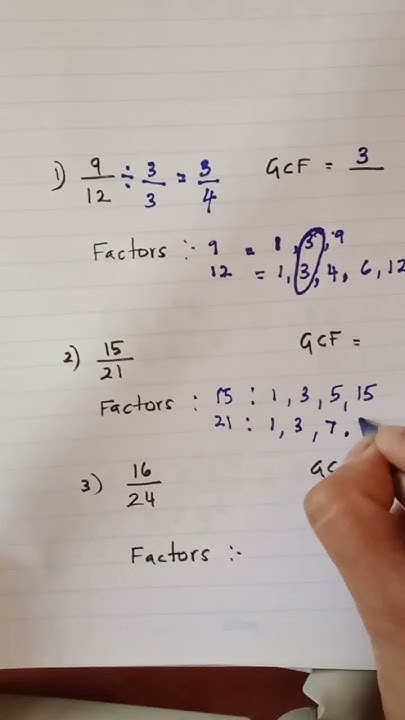 1) 9/12 ÷ 3/3 = 3/4 GCF = 3
Factors :- 9 = 1, 3, 9
12 = 1, 3, 4, 6, 12
2) 15/21 GCF =
Factors : 15 : 1, 3, 5, 15
21 : 1, 3, 7,
3) 16/24
Factors :-